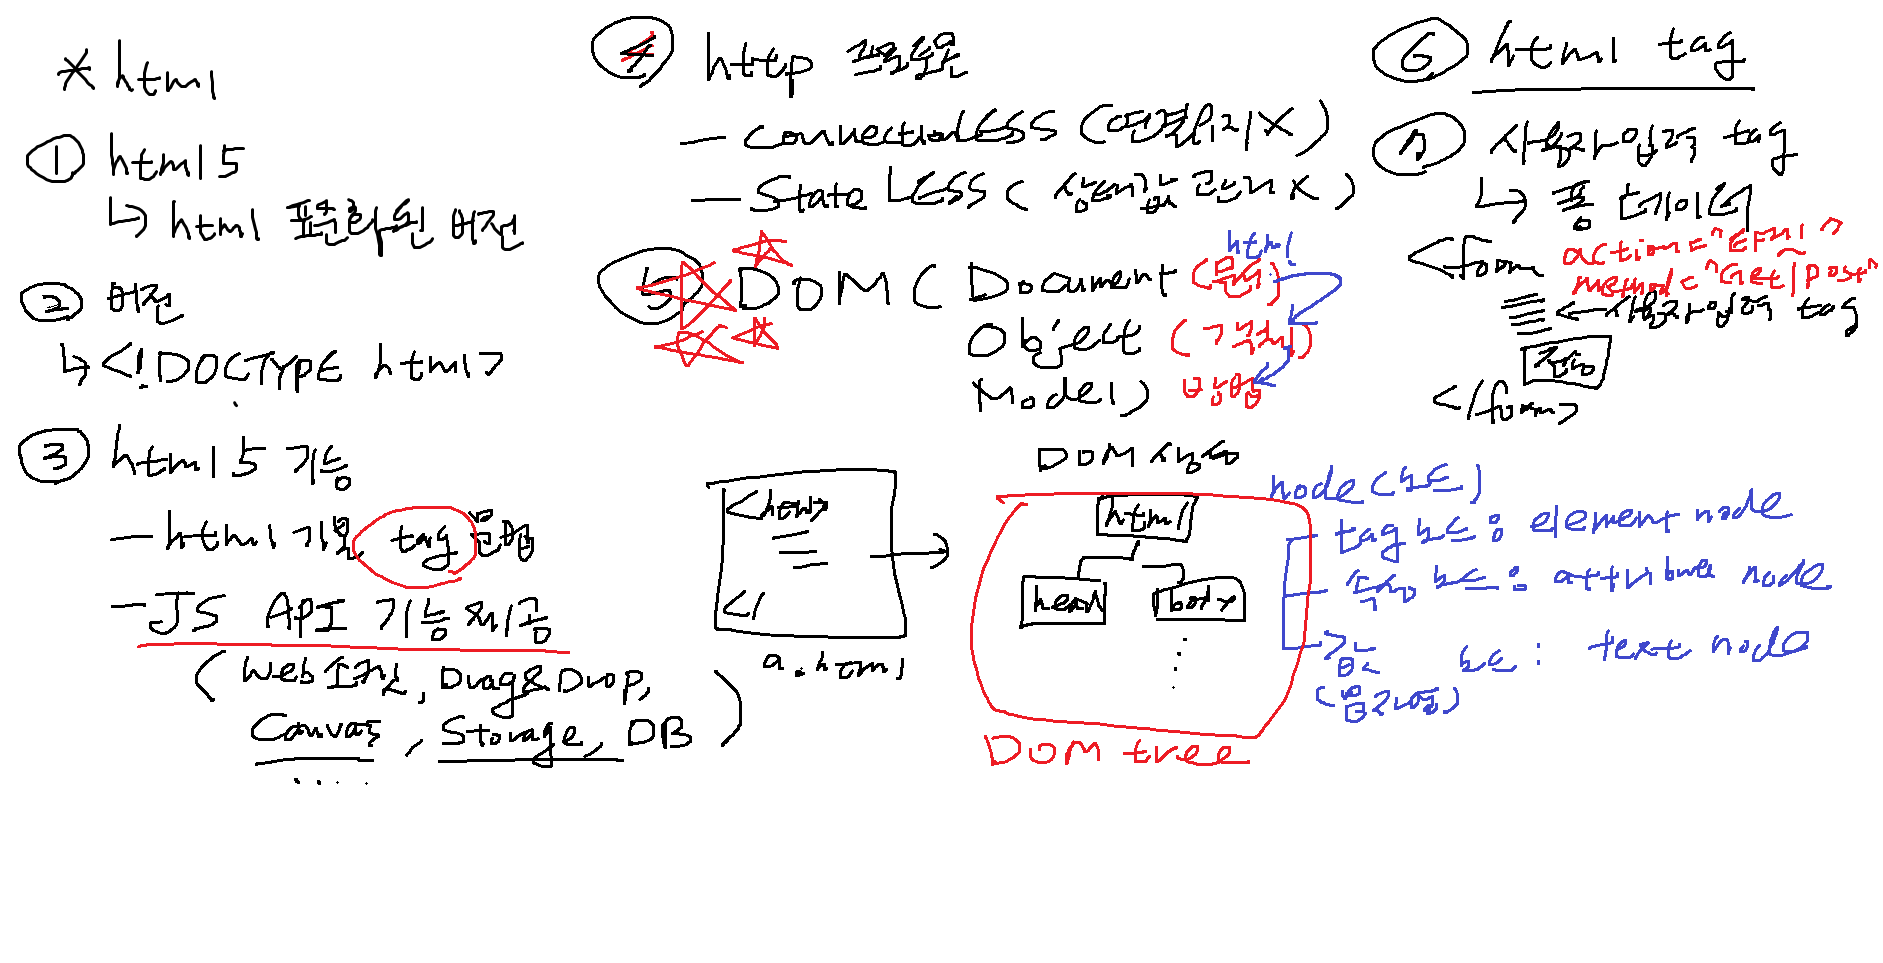 * html
① html5
↳ html 표준화된 버전
② 버전
↳ <!DOCTYPE html>
③ html5 기능
- html 기본 tag 문법
- JS API 기능 제공
( Web소켓, Drag&Drop,
Canvas, Storage, DB )
....
④ http 프로토콜
- connectionLESS (연결유지X)
- State LESS ( 상태값 관리 X )
⑤ DOM ( Document (문서)
html
Object (객체)
Model) 방법
<html>
</
a.html
DOM 생성
html
head
body
DOM tree
node (노드)
tag 노드 : element node
속성 노드 : attribute node
값 노드 : text node
(문자열)
⑥ html tag
사용자입력 tag
↳ 폼 데이터
<form action="타겟"
method="Get|post"
← 사용자입력 tag
전송
</form>